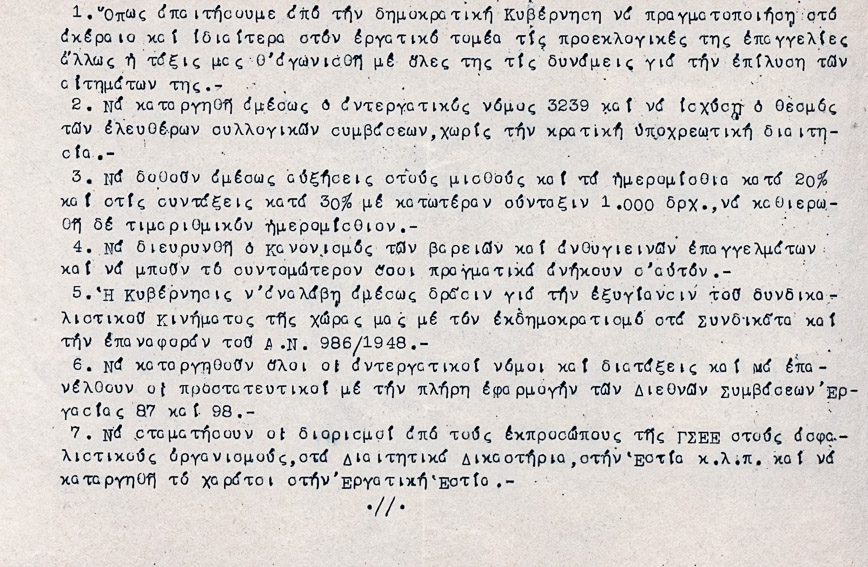 1. Ὅπως ἀπαιτήσουμε ἀπό τήν δημοκρατική Κυβέρνηση νά πραγματοποιήση στό
ἀκέραιο καί ἰδιαίτερα στόν ἐργατικό τομέα τίς προεκλογικές της ἐπαγγελίες
ἄλλως ἡ τάξις μας θ'ἀγωνισθῆ μέ ὅλες της τίς δυνάμεις γιά τήν ἐπίλυση τῶν
αἰτημάτων της.-
2. Νά καταργηθῆ ἀμέσως ὁ ἀντεργατικός νόμος 3239 καί νά ἰσχύση ὁ θεσμός
τῶν ἐλευθέρων συλλογικῶν συμβάσεων,χωρίς τήν κρατική ὑποχρεωτική διαιτη-
σία.-
3. Νά δοθοῦν ἀμέσως αὐξήσεις στούς μισθούς καί τά ἡμερομίσθια κατά 20%
καί στίς συντάξεις κατά 30% μέ κατωτέραν σύνταξιν 1.000 δρχ.,νά καθιερω-
θῆ δέ τιμαριθμικόν ἡμερομίσθιον.-
4. Νά διευρυνθῆ ὁ Κανονισμός τῶν βαρειῶν καί ἀνθυγιεινῶν ἐπαγγελμάτων
καί νά μποῦν τό συντομώτερον ὅσοι πραγματικά ἀνήκουν σ'αὐτόν.-
5. Ἡ Κυβέρνησις ν'ἀναλάβη ἀμέσως δρᾶσιν γιά τήν ἐξυγίανσιν τοῦ συνδικα-
λιστικοῦ Κινήματος τῆς χώρας μας μέ τόν ἐκδημοκρατισμό στά Συνδικᾶτα καί
τήν ἐπαναφοράν τοῦ Α.Ν. 986/1948.-
6. Νά καταργηθοῦν ὅλοι οἱ ἀντεργατικοί νόμοι καί διατάξεις καί νά ἐπα-
νέλθουν οἱ προστατευτικοί μέ τήν πλήρη ἐφαρμογήν τῶν Διεθνῶν Συμβάσεων Ἐρ-
γασίας 87 καί 98.-
7. Νά σταματήσουν οἱ διορισμοί ἀπό τούς ἐκπροσώπους τῆς ΓΣΕΕ στούς ἀσφα-
λιστικούς ὀργανισμούς,στά Διαιτητικά Δικαστήρια,στήν Ἑστία κ.λ.π. καί νά
καταργηθῆ τό χαράτσι στήν Ἐργατική Ἑστία.-
.//.